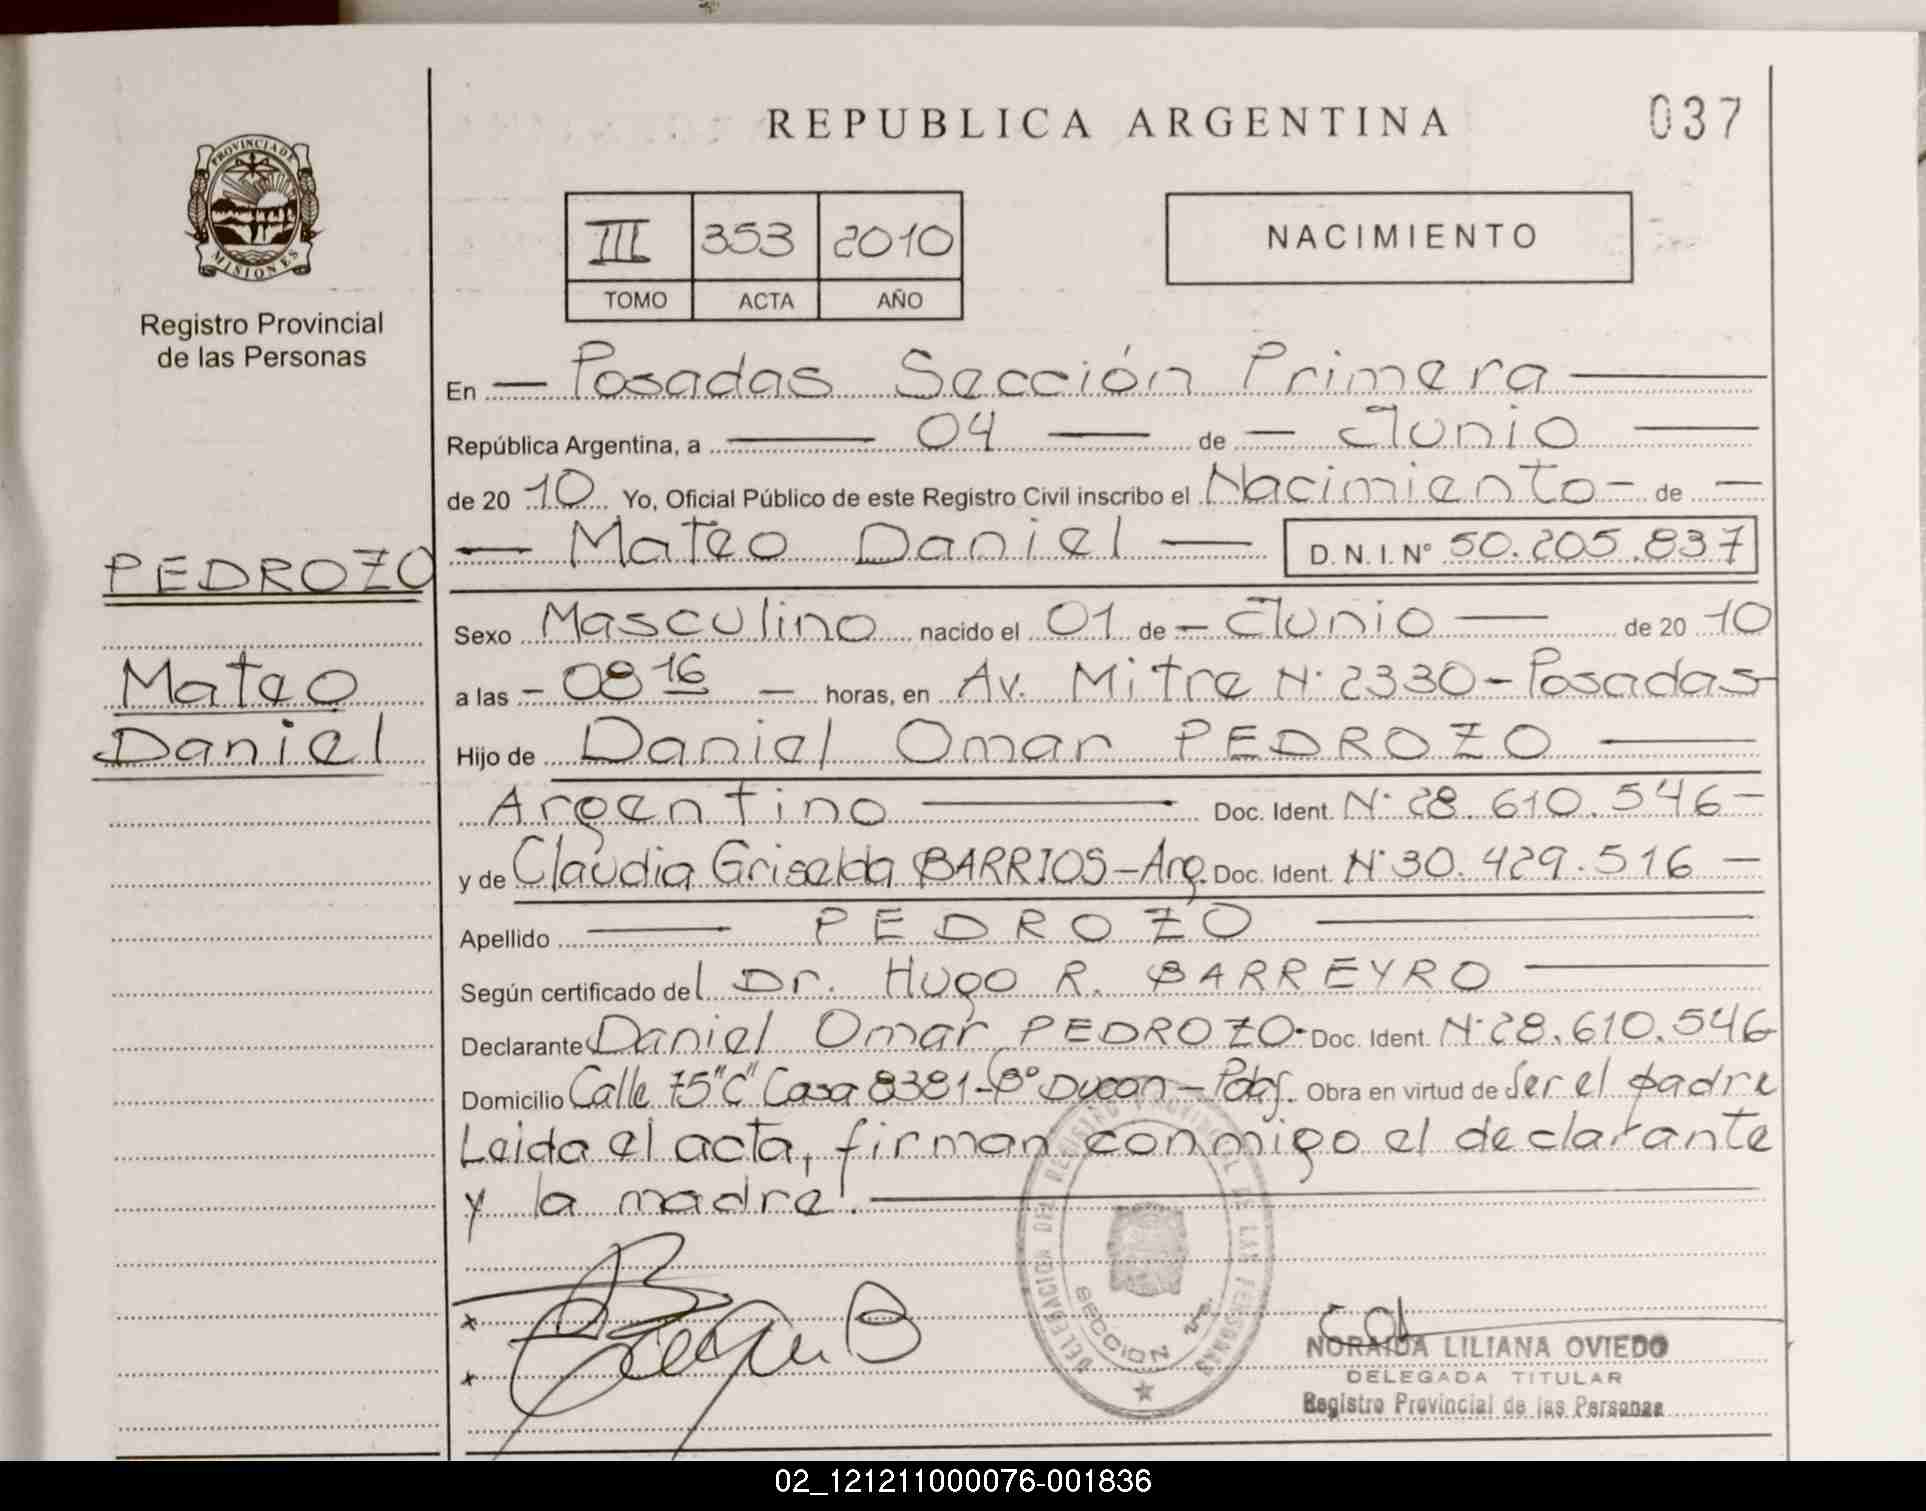 REPUBLICA ARGENTINA
037
PROVINCIA DE
MISIONES
Registro Provincial
de las Personas
III 353 2010
TOMO ACTA AÑO
NACIMIENTO
En — Posadas Sección Primera —
República Argentina, a — 04 — de — Junio —
de 20 10 Yo, Oficial Público de este Registro Civil inscribo el Nacimiento - de —
— Mateo Daniel — D. N. I. N° 50.205.837
PEDROZO
Mateo
Daniel
Sexo Masculino nacido el 01 de — Junio — de 20 10
a las - 08 16 — horas, en Av. Mitre N° 2330 - Posadas
Hijo de Daniel Omar PEDROZO —
Argentino — Doc. Ident. N° 28.610.546 -
y de Claudia Griselda BARRIOS - Arg. Doc. Ident. N° 30.429.516 —
Apellido — PEDROZO —
Según certificado del Dr. Hugo R. BARREYRO —
Declarante Daniel Omar PEDROZO - Doc. Ident. N° 28.610.546
Domicilio Calle 75 "C" Casa 8381 - B° - Pdas. Obra en virtud de Ser el padre
Leida el acta, firman conmigo el declarante
y la madre. —
DELEGACION DEL REGISTRO PROVINCIAL DE LAS PERSONAS
SECCION 1ra.
x
x
NORAIDA LILIANA OVIEDO
DELEGADA TITULAR
Registro Provincial de las Personas
02_121211000076-001836